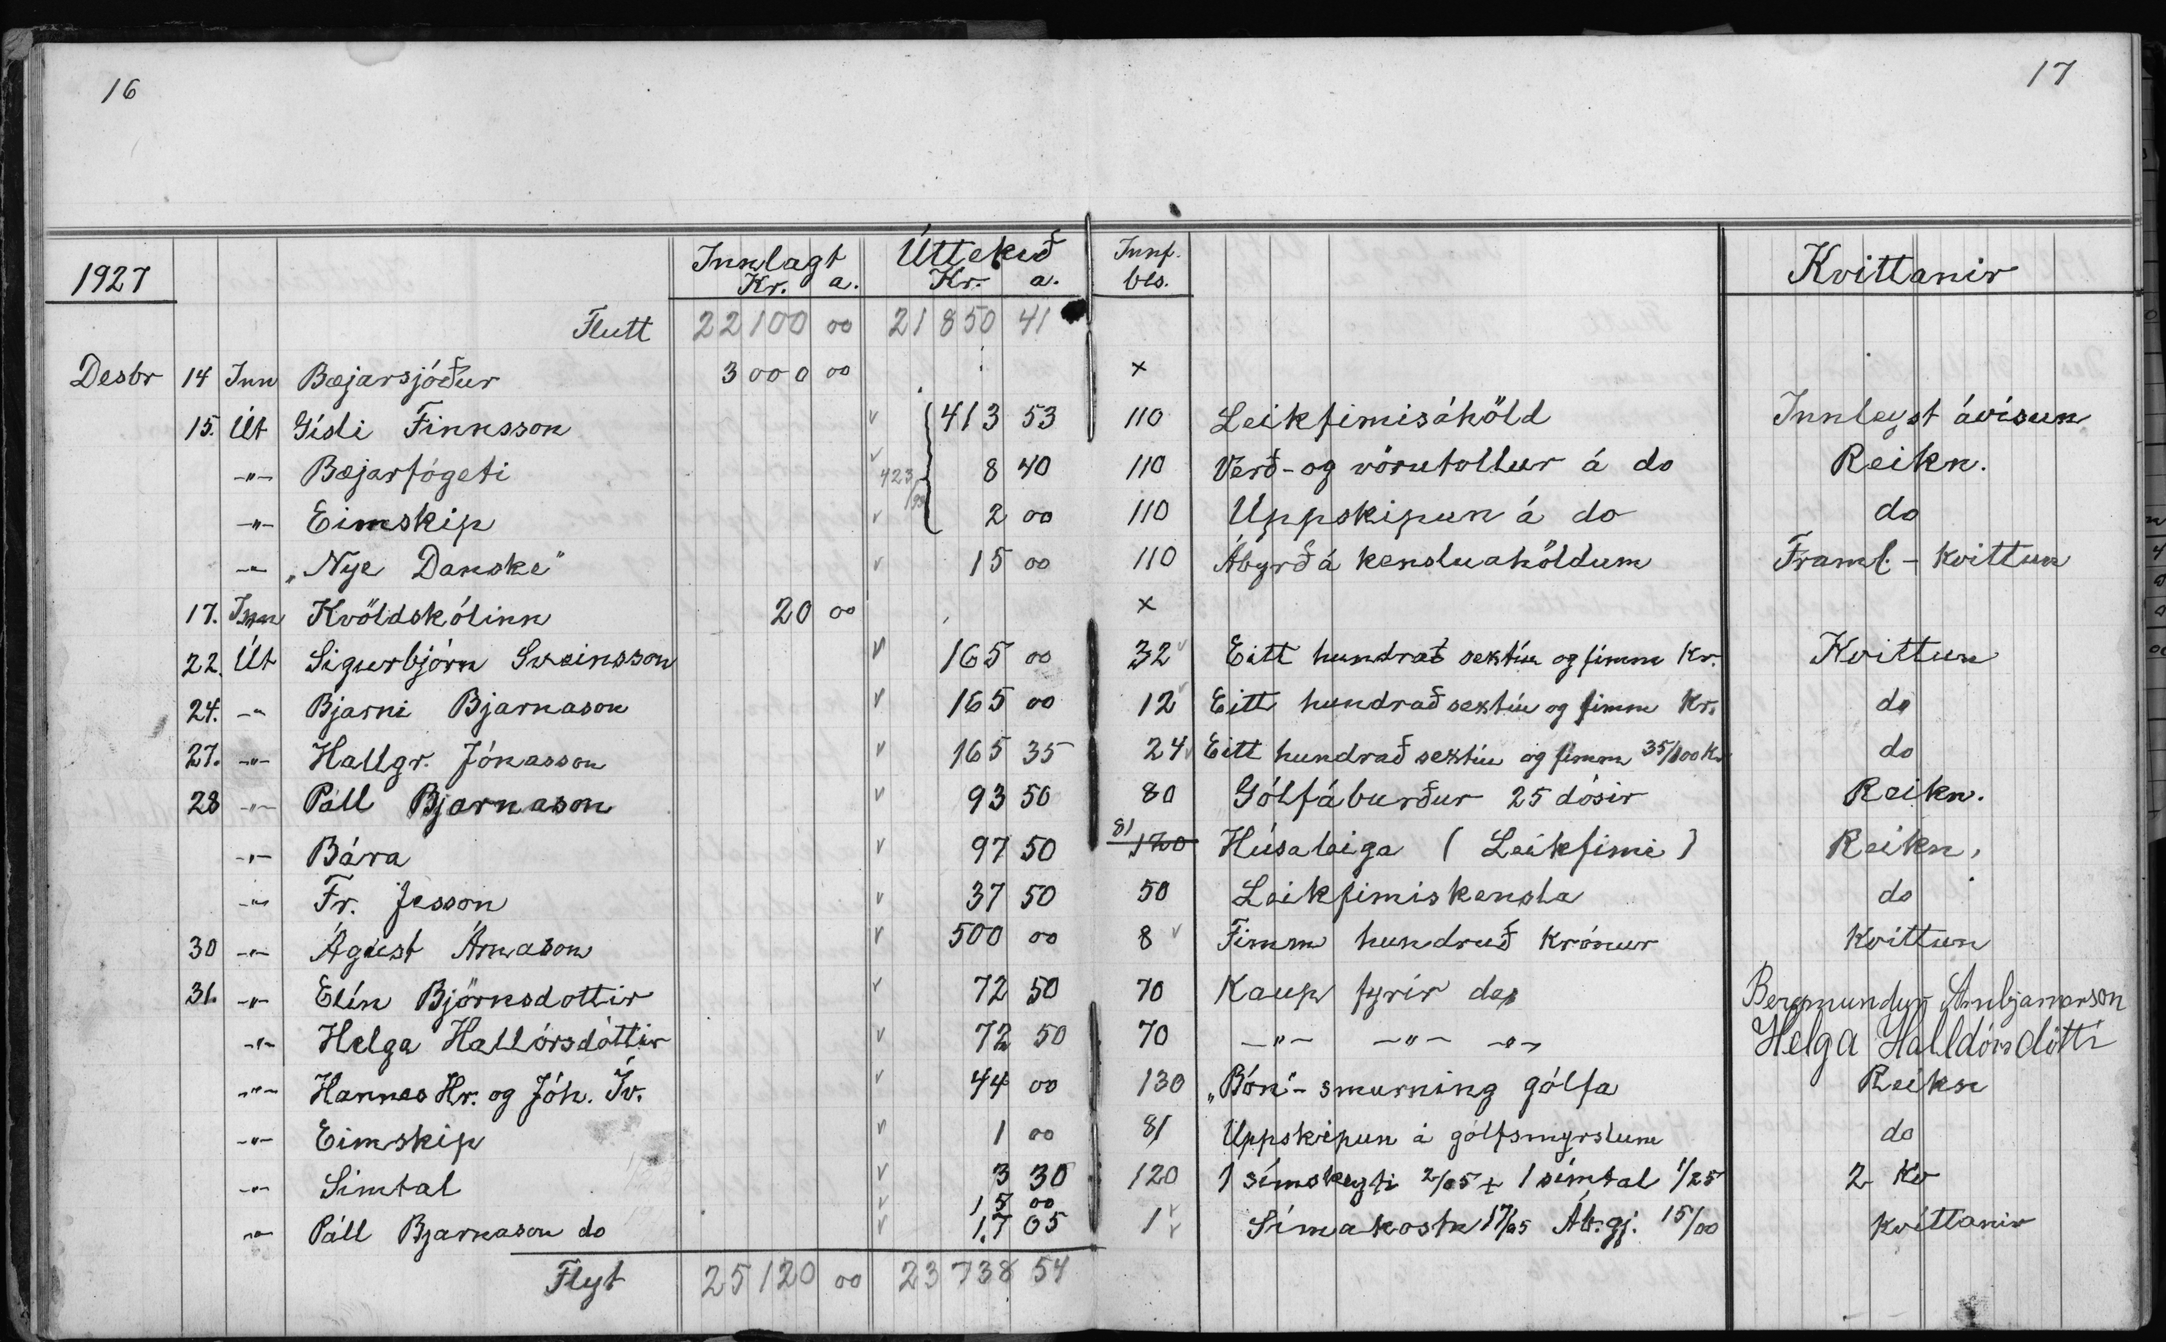 16
17
1927 Innlagt Úttekið Innf. Kvittanir
Kr. a. Kr. a. bls.
Flutt 22100 00 21850 41
Desbr 14 Inn Bæjarsjóður 3000 00 x
15. Út Gísli Finnsson 413 53 110 Leikfimisáhöld Innleyst ávísun
-"- Bæjarfógeti 423/93 8 40 110 Verð- og vörutollur á do Reikn.
-"- Eimskip 2 00 110 Uppskipun á do do
-"- „Nye Danske" 15 00 110 Ábyrð á kensluahöldum Framl. - kvittun
17. Inn Kvöldskólinn 20 00 x
22. Út Sigurbjörn Sveinsson 165 00 32 Eitt hundrað sextíu og fimm Kr. Kvittun
24. -"- Bjarni Bjarnason 165 00 12 Eitt hundrað sextíu og fimm Kr. do
27. -"- Hallgr. Jónasson 165 35 24 Eitt hundrað sextíu og fimm 35/100 Kr do
28 -"- Páll Bjarnason 93 50 80 Gólfáburður 25 dósir Reikn.
-"- Bára 97 50 81 120 Húsaleiga ( Leikfimi ) Reikn.
-"- Fr. Jesson 37 50 50 Leikfimiskensla do
30 -"- Ágúst Árnason 500 00 8 Fimm hundruð krónur Kvittun
31. -"- Elín Björnsdottir 72 50 70 Kaup fyrir des Bergmundur Arnbjarnarson
-"- Helga Hallórsdóttir 72 50 70 -"- -"- -"- Helga Halldórsdótti
-"- Hannes Hr. og Jóh. Ív. 44 00 130 „Bón"- smurning gólfa Reikn
-"- Eimskip 1 00 81 Uppskipun á gólfsmyrslum do
-"- Símtal 3 30 120 1 símskeyti 2/05 + 1 símtal 1/25 2 Kv
15 00
-"- Páll Bjarnason do 17 05 1 Símakostn 17/05 Áb.gj. 15/00 kvittanir
Flyt 25120 00 23738 54